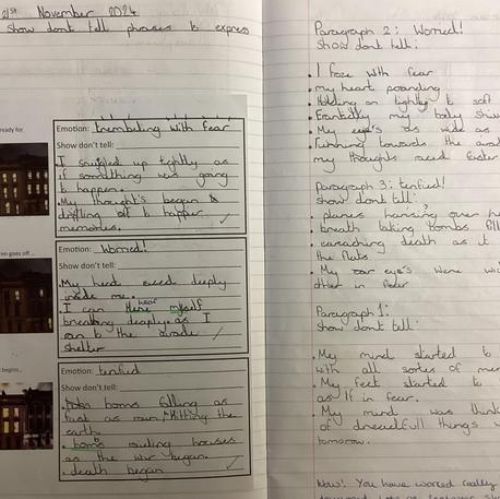 21st November 2024
show dont tell phrases to express
ready for
Emotion: trembuling with fear
Show don't tell:
I snuggled up tightly as
if something was going
to happen.
My thought's began
drifting off to happer
memories.
en goes off...
Emotion: Worried!
Show don't tell:
My head raced deeply
inside me.
hear
I can myself
breathing deeply as I
ran to the
shelter
begins...
Emotion: terrified
Show don't tell:
boms falling as
fast as rain, hitting the
earth.
boms houses
as the war began.
death began
Paragraph 2: Worried!
Show dont tell:
I froze with fear
my heart pounding
Holding on tightly to soft
Frantically my body
My eye's as wide as
Running towards the
my thoughts raced faster
Paragraph 3: terrified!
show dont tell:
planes over
breath taking bombs
death as it
the flats
My eye's were
in fear
Paragraph 1:
show dont tell:
My mind started to
with all sortes of
My feet started to
as if in fear.
My mind was think
of dreadfull things
tomorrow.
Wow! You have worked really